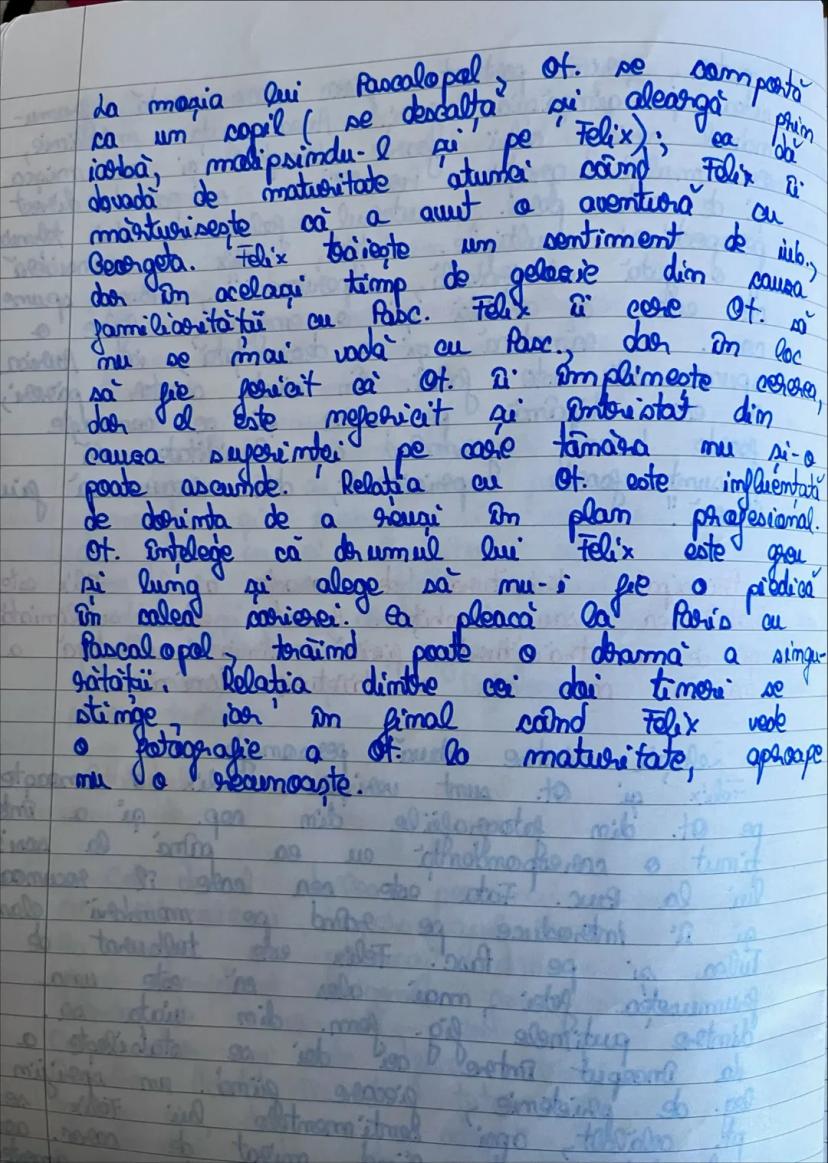 La moșia lui Pascalopol, Ot. se comportă
ca un copil ( se descalță și aleargă prin
iarbă, molipsindu-l și pe Felix); ea dă
dovadă de maturitate atunci când Felix îi
mărturisește că a avut o aventură cu
Georgeta. Felix trăiește un sentiment de iub.,
dar în același timp de gelozie din cauza
familiarității cu Pasc. Felix îi cere Ot. să
nu se mai vadă cu Pasc., dar în loc
să fie fericit că Ot. îi împlinește cererea,
dar el este nefericit și întristat din
cauza suferinței pe care tânăra nu și-o
poate ascunde. Relația cu Ot. este influențată
de dorința de a reuși în plan profesional.
Ot. înțelege că drumul lui Felix este greu
și lung și alege să nu-i fie o piedică
în calea carierei. Ea pleacă la Paris cu
Pascalopol, trăind poate o dramă a singu-
rătății. Relația dintre cei doi tineri se
stinge, iar în final când Felix vede
o fotografie a Ot. la maturitate, aproape
nu o recunoaște.